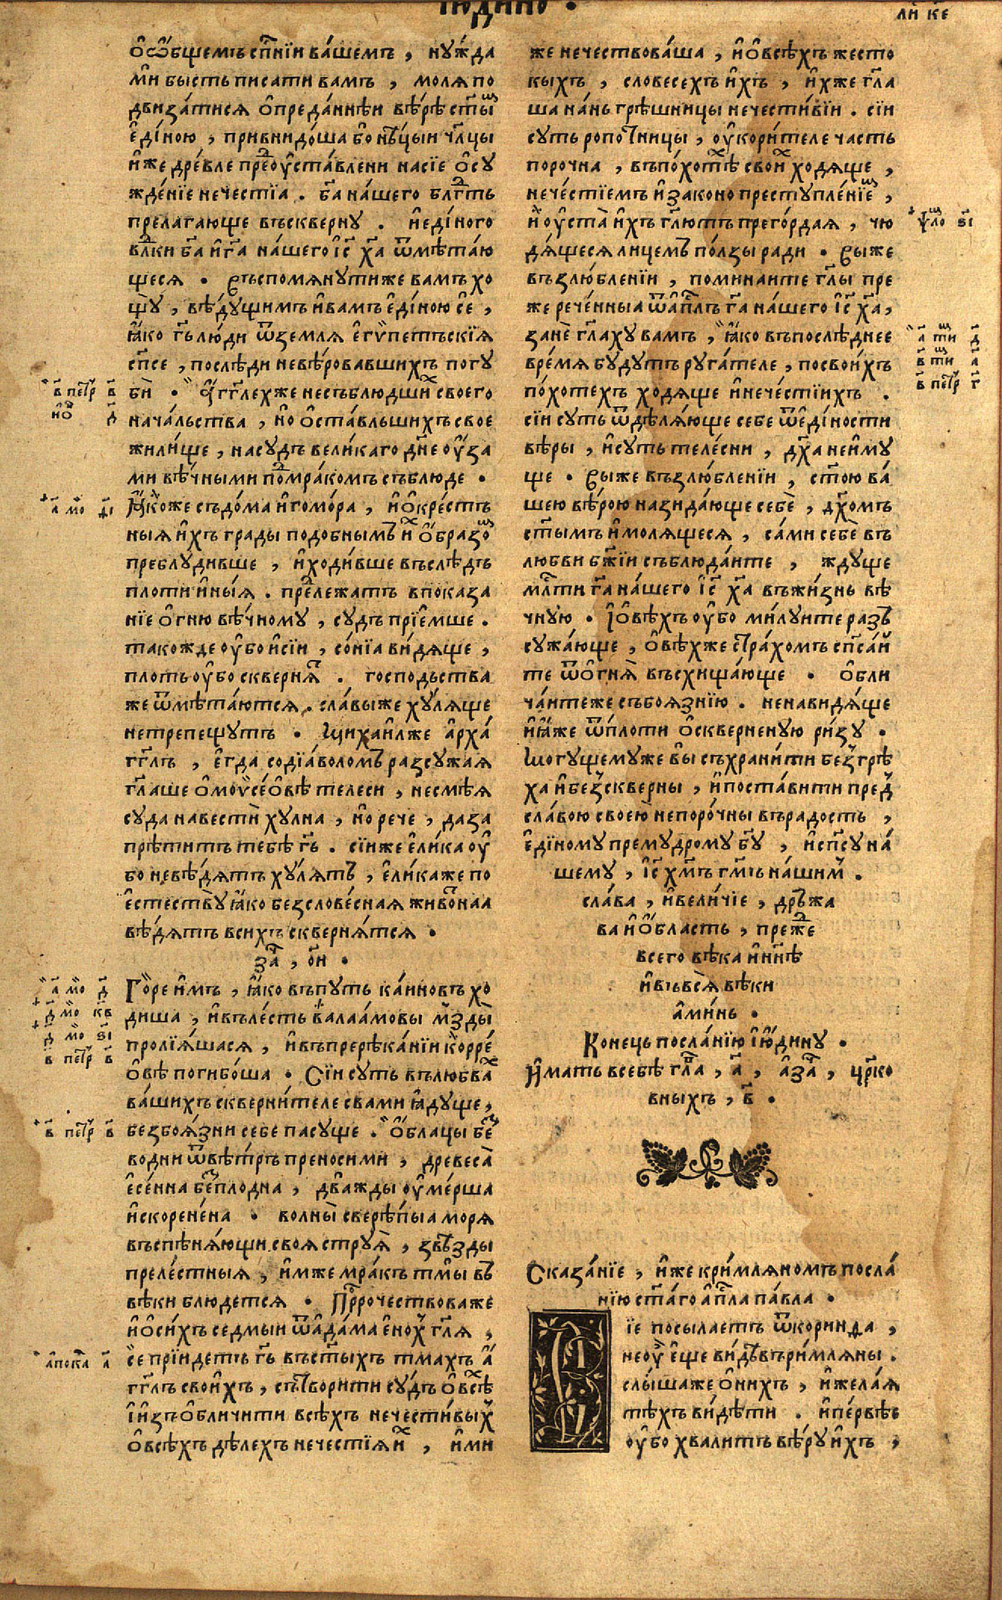 Июдино .
ли к҃е
ѻ҆ѻ҆бщемъ сп҃нїи ва́шемъ , ну́жда
мѝ бысть писати вамъ , моля по
двиза́тися ѻ҆преда́ннѣи вѣ́рѣ ст҃ы
е҆ди́ною , привнидо́ша бо нѣ́цыи чл҃цы
и҆же дре́вле преѹ҆ста́влени насїе ѻ҆су
жде́нїе нечестїа . б҃а на́шего блг҃ть
прелага́юще въскверну . и҆еди́ного
влⷣки б҃а и҆г҃а на́шего і҆с҃ х҃а ѿмѣта́ю
щеся . въспомяну́тиже вамъ хо
щу̀ , вѣ́дущимъ и҆вамъ е҆ди́ною се̑ ,
ꙗ҆ко г҃ь лю́ди ѿземля̀ е҆гѵ́петьскїя
сп҃се , послѣди невѣ́ровавшихъ погу
бѝ . а҆́гг҃лехже несъблю́дших своего
нача́льства , но ѻ҆ста́вльшихъ свое
жили́ще , насу́дъ вели́каго дн҃е ѹ҆́за
ми вѣ́чными пⷪмра́комъ съблюде .
Ꙗ҆́коже съдо́ма игомо́ра , и҆ѻ҆кре́стъ
ныя и҆́хъ грады подобнымъ и҆ ѻ҆́бразо
преблуди́вше , и҆ходи́вше въслѣ́дъ
плоти и҆́ныя . прⷣележатъ впоказа
нїе ѻ҆гню вѣ́чному , су́дъ прїе́мше .
такожде ѹ҆́бо и҆сїи , со́нїа ви́дяще ,
пло́ть ѹ҆́бо скверня́т . господьства
же ѿмѣта́ются . сла́выже ху́ляще
нетрепещутъ . Михаи́лже а҆рха́
гг҃лъ , е҆гда́ содїа́воломъ разсужая
г҃лаше ѻ҆моѷсе́ѻвѣ телеси , несмѣ́я
суда̀ навестѝ ху́лна , но рече , да за
прѣти́тъ тебѣ̀ г҃ь . сїи́же е҆ли́ка ѹ҆́
бо невѣ́дятъ ху́лятъ , е҆ли́каже по
е҆стеству̀ ꙗ҆́ко безслове́сная живо́тнаа
вѣ́дятъ всихъ сквернятся .
за҃ , о҃и .
Го́ре и҆́мъ , ꙗ҆́ко въпу́ть ка́иновъ хо
диша , и҆вълѣ́сть вала́амовы мзды
пролїя́шася , и҆въпререка́нїи корре́
ѻвѣ погибо́ша . Сїи суть въ любва́х
ва́шихъ скверни́теле свами ꙗ҆ду́ще ,
безбоя́зни себе пасуще . ѻ҆́блацы бе́з
водни ѿвѣ́тръ преноси́ми , древеса̀
е҆се́нна бе́зплодна , два́жды ѹ҆ме́рша
и҆скорене́на . волны̀ сверѣ́пыа моря
въспѣня́ющи своя струя̀ , звѣ́зды
преле́стныя , и҆́мже мра́къ тмы̀ въ
вѣки блюдется . Прⷪрочествоваже
и҆ ѻ҆си́хъ седмы́и ѿа҆да́ма е҆но́х г҃ля ,
се прїи́детъ г҃ь въст҃ыхъ тма́хъ а҆́
гг҃лъ свои́хъ , сътвори́ти су́дъ ѻ҆всѣх
и҆ изъѻ҆бличи́ти всѣ́хъ нечести́вых
ѻ҆всѣ́хъ дѣ́лехъ нече́стїя и҆х , и҆́ми
же нечествова́ша , и҆ѻ҆всѣ́хъ жесто
кыхъ , словесехъ и҆́хъ , и҆́хже г҃ла
ша на́нь грѣ́шницы нечести́вїи . сїи
суть ропо́тницы , ѹ҆кори́теле часть
порочна , въпо́хотѣх свои́х ходяще ,
нече́стїемъ и҆законо преступле́нїе ,
и҆ ѹ҆ста̀ и҆́хъ г҃лютъ прего́рдая , чю
дя́щеся лицемъ по́лзы ради . выже
възлю́бленїи , поминаите г҃лы пре
же рече́нныа ѿап҃лъ г҃а на́шего і҆с҃ х҃а ,
занѐ г҃лаху вамъ , ꙗ҆́ко въпослѣ́днее
вре́мя бу́дутъ руга́теле , посвои́хъ
по́хотехъ ходяще и҆нечестїихъ .
сїи суть ѿдѣля́юще себе ѿе҆ди́ности
вѣ́ры , и҆суть теле́сни , дх҃а неи҆му
ще . выже възлю́бленїи , ст҃ою ва́
шею вѣ́рою назида́юще себѐ , дх҃омъ
ст҃ымъ и҆моля́щеся , са́ми себе въ
любви бж҃їи съблюда́ите , жду́ще
мл҃ти г҃а на́шего і҆с҃ х҃а въжи́знь вѣ́
чную . И҆ѻ҆вѣ́хъ ѹ҆́бо ми́луите разъ
сужа́юще , ѻ҆вѣ́хже стра́хомъ сп҃са́и
те ѿѻ҆гня̀ въсхища́юще . ѻ҆бли
ча́итеже съ боя́знїю . ненави́дяще
и҆ ꙗ҆́же ѿпло́ти ѻ҆скверне́ную ри́зу .
Могу́щемуже вы съхрани́ти безгрѣ
ха̀ и҆безскверны , и҆поста́вити пред
сла́вою своею̀ непоро́чны въра́дость ,
е҆ди́ному прему́дрому б҃у , и҆сп҃су на́
шему , і҆с҃ х҃мъ г҃мъ на́шим .
сла́ва , и҆вели́чїе , дръ́жа
ва и҆ ѻ҆́бласть , пре́же
всего вѣ́ка и҆ нн҃ѣ
и҆въ вся̀ вѣ́ки
а҆ми́нь .
Коне́цъ посла́нїю І҆ю́дину .
И҆́мать всебѣ̀ гла҃ , а҃ , а҆за҃ , црⷪко
вныхъ , в҃ .
Сказа́нїе , и҆́же кри́мляномъ посла́
нїю ст҃а́го ап҃ла па́вла .
Сїе посыла́етъ ѿкори́нѳа ,
неѹ҆̀ е҆ще ви́дѣвъ ри́мляны .
слы́шаже ѻ҆ни́хъ , и҆жела́я
тѣ́хъ ви́дѣти . и҆пе́рвѣе
ѹ҆́бо хвали́тъ вѣ́ру и҆́хъ ,